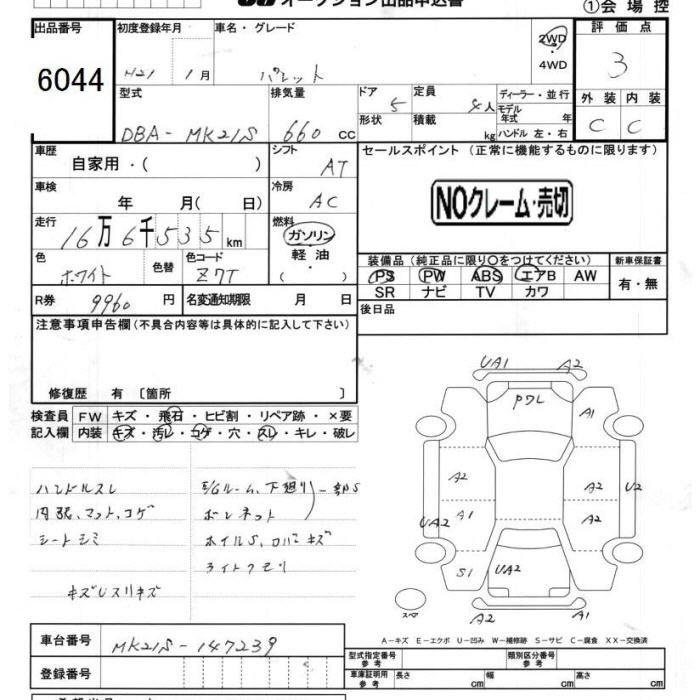 オークション出品申込書 ①会場控
出品番号 初度登録年月 車名・グレード 2WD 評価点
6044 H21 1月 パレット 4WD 3
型式 排気量 ドア 5 定員 4人 ディーラー・並行 外装 内装
DBA-MK21S 660 cc 形状 積載 kg モデル年式 年 C C
ハンドル 左・右
車歴 シフト セールスポイント (正常に機能するものに限ります)
自家用・( ) AT
車検 冷房 NOクレーム・売切
年 月( 日) AC
走行 燃料
16万6千535km ガソリン
軽油
・
( )
色 ホワイト 色替 色コード Z7T
装備品(純正品に限り○をつけてください) 新車保証書
PS PW ABS エアB AW 有・無
SR ナビ TV カワ
R券 9960 円 名変通知期限 月 日 後日品
注意事項申告欄(不具合内容等は具体的に記入して下さい)
修復歴 有〔箇所 〕
検査員 FW キズ・飛石・ヒビ割・リペア跡・×要
記入欄 内装 キズ・汚レ・コゲ・穴・スレ・キレ・破レ
ハンドルスレ E/Gルーム、下廻り 一部S
内張、マット、コゲ ボンネット
シートシミ ホイルS、カバーキズ
ライトクモリ
キズUスリキズ
UA1 A2
A1
A2 A2 U2
UA2 A1 A2
S1 UA2
A2 A2
スペア
A-キズ E-エクボ U-凹み W-補修跡 S-サビ C-腐食 XX-交換済
車台番号 MK21S-147239
型式指定番号 参考 類別区分番号 参考
登録番号 車庫証明用 参考 長さ cm 幅 cm 高さ cm